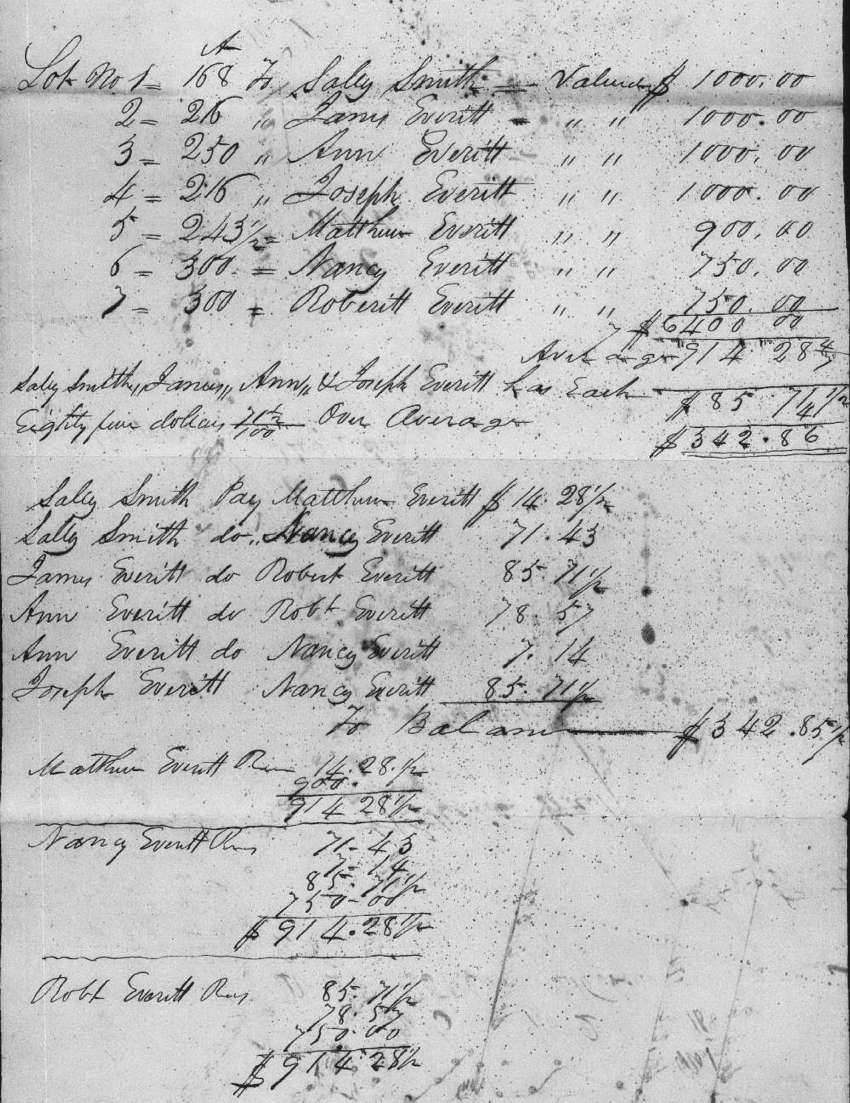 A
Lot No 1 = 168 To Sally Smith = Valued $ 1000.00
2 = 216 " James Everitt = " " 1000.00
3 = 250 " Ann Everitt " " 1000.00
4 = 216 " Joseph Everitt " " 1000.00
5 = 243 1/2 = Matthew Everitt " " 900.00
6 = 300 = Nancy Everitt " " 750.00
7 = 300 = Roberitt Everitt " " 750.00
7 $6400 00
Average "914 "28 4/7
Sally Smith, James, Ann, & Joseph Everitt has Each $85.71 1/2
4
Eighty five dollars 71 1/2/100 Over Average $342.86
Sally Smith Pay Matthew Everitt $14.28 1/2
Sally Smith do " Nancy Everitt 71.43
James Everitt do Robert Everitt 85.71 1/2
Ann Everitt do Robt Everitt 78.57
Ann Everitt do Nancy Everitt 7.14
Joseph Everitt Nancy Everitt 85.71 1/2
To Balance $342.85 1/2
Matthew Everitt 14.28 1/2
900.
914 28 1/2
Nancy Everitt 71-43
7-14
85.71 1/2
750-00
$914.28 1/2
Robt Everitt 85.71 1/2
78.57
750.00
$914.28 1/2